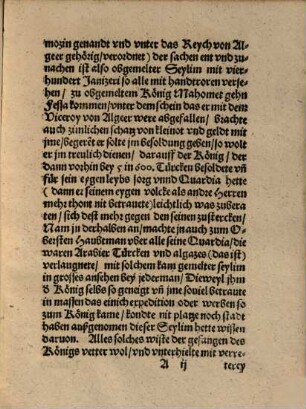 mozin genandt vnd vnter das Reych von Al-
geer gehörig/verordnet) der sachen ent vnd zu-
nachen ist also obgemelter Seylim mit vier-
hundert Janizeri so alle mit handtroren verse-
hen/ zu obgemeltem König Mahomet gehn
Fessa kommen/vnter dem schein das er mit dem
Viceroy von Algeer were abgefallen/ brachte
auch zimlichen schatz von kleinot vnd geldt mit
jme/begeret er solte jm besoldung geben/so wolt
er jm treulich dienen/ darauff der König/ der
dann vorhin bey 5 in 600. Türcken besoldete vñ
für sein eygen leybs sorg vnnd Quardia hette
(dann er seinem eygen volcke als andre Herren
mehr thont nit betraute) leichtlich was zubera-
ten/ sich dest mehr gegen den seinen zustercken/
Nam jn derhalben an/ machte jn auch zum O-
bersten Haubtman vber alle seine Quardia/die
waren Arabier Türcken vnd algazes (das ist)
verlangnete/ mit solchem kam gemelter seylim
in grosses ansehen bey jederman/ Dieweyl jhm
d König selbs so geneigt vñ jme souiel betraute
in massen das einich expedition oder werben so
zum König kame/ kondte nit platz noch stadt
haben außgenomen dieser Seylim hette wissen
daruon. Alles solches wiste der gefangen des
Königs vetter wol/ vnd vnterhielte mit verre-
A ij terey